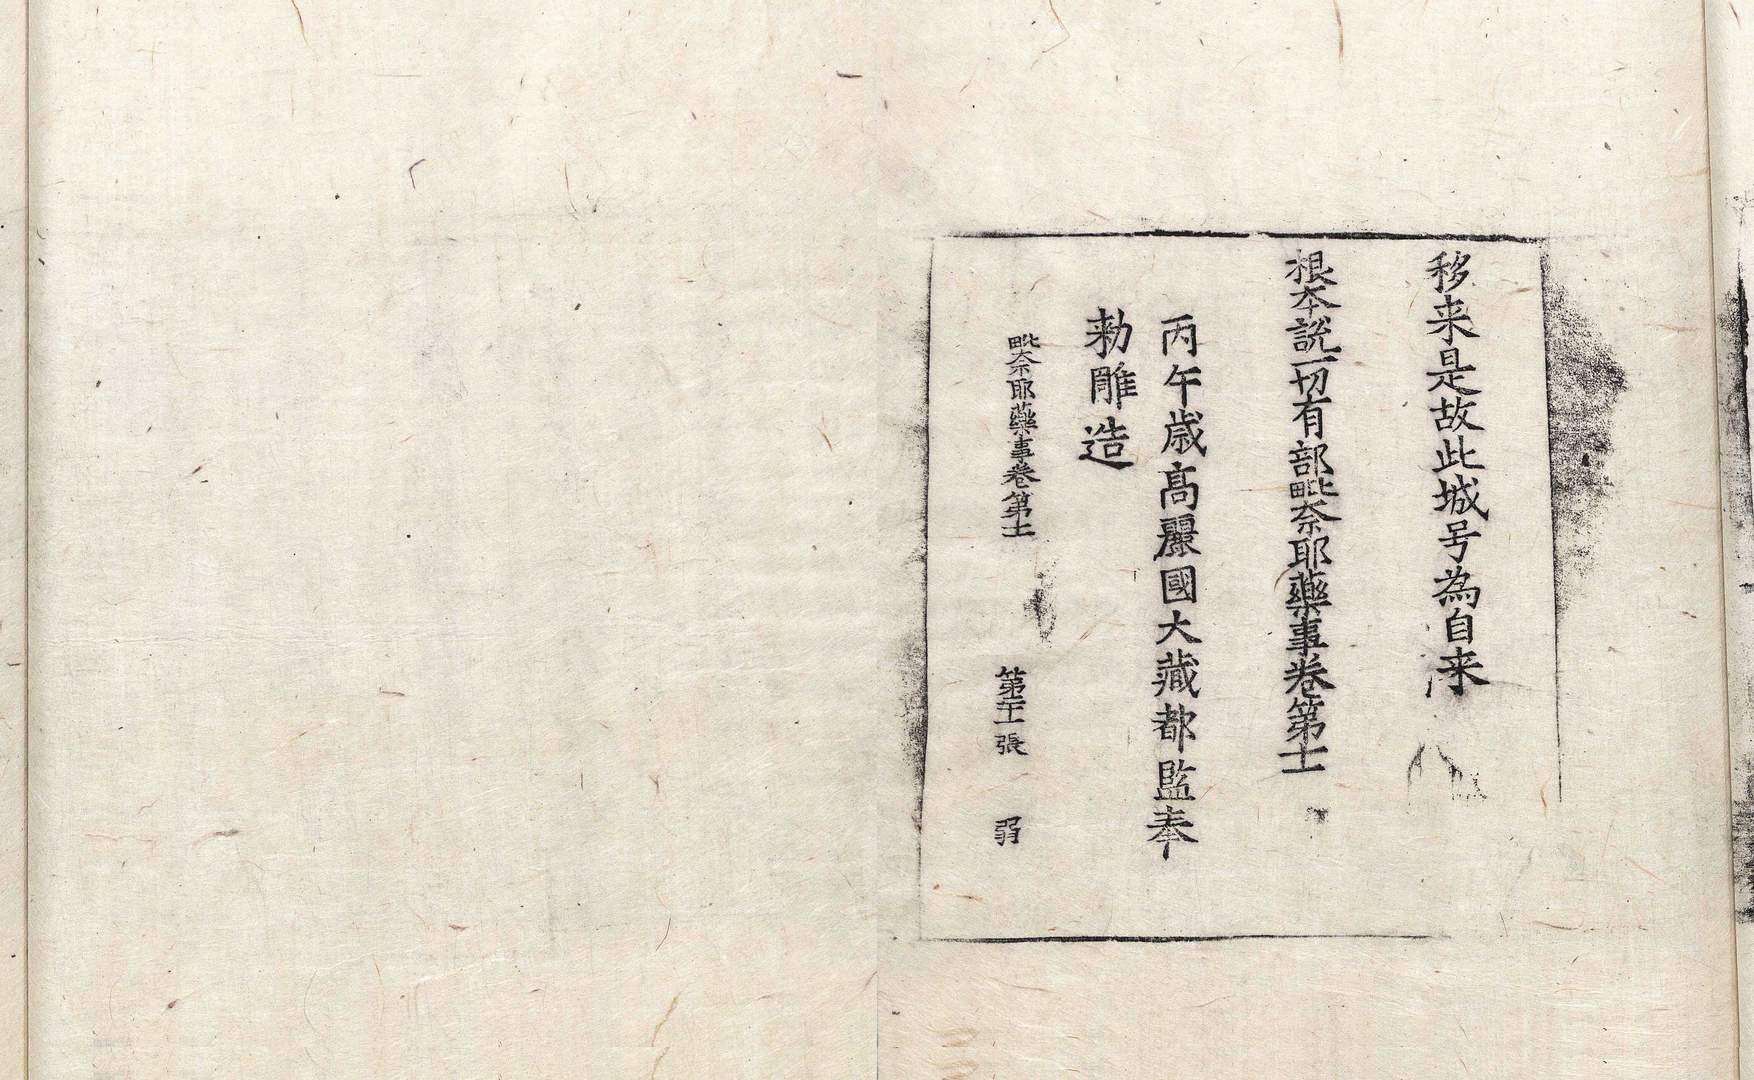 移来是故此城号為自来
根本說一切有部毗奈耶藥事卷第十一
丙午歲高麗國大藏都監奉
勑雕造
毗奈耶藥事卷第十一 第二十一張 弱